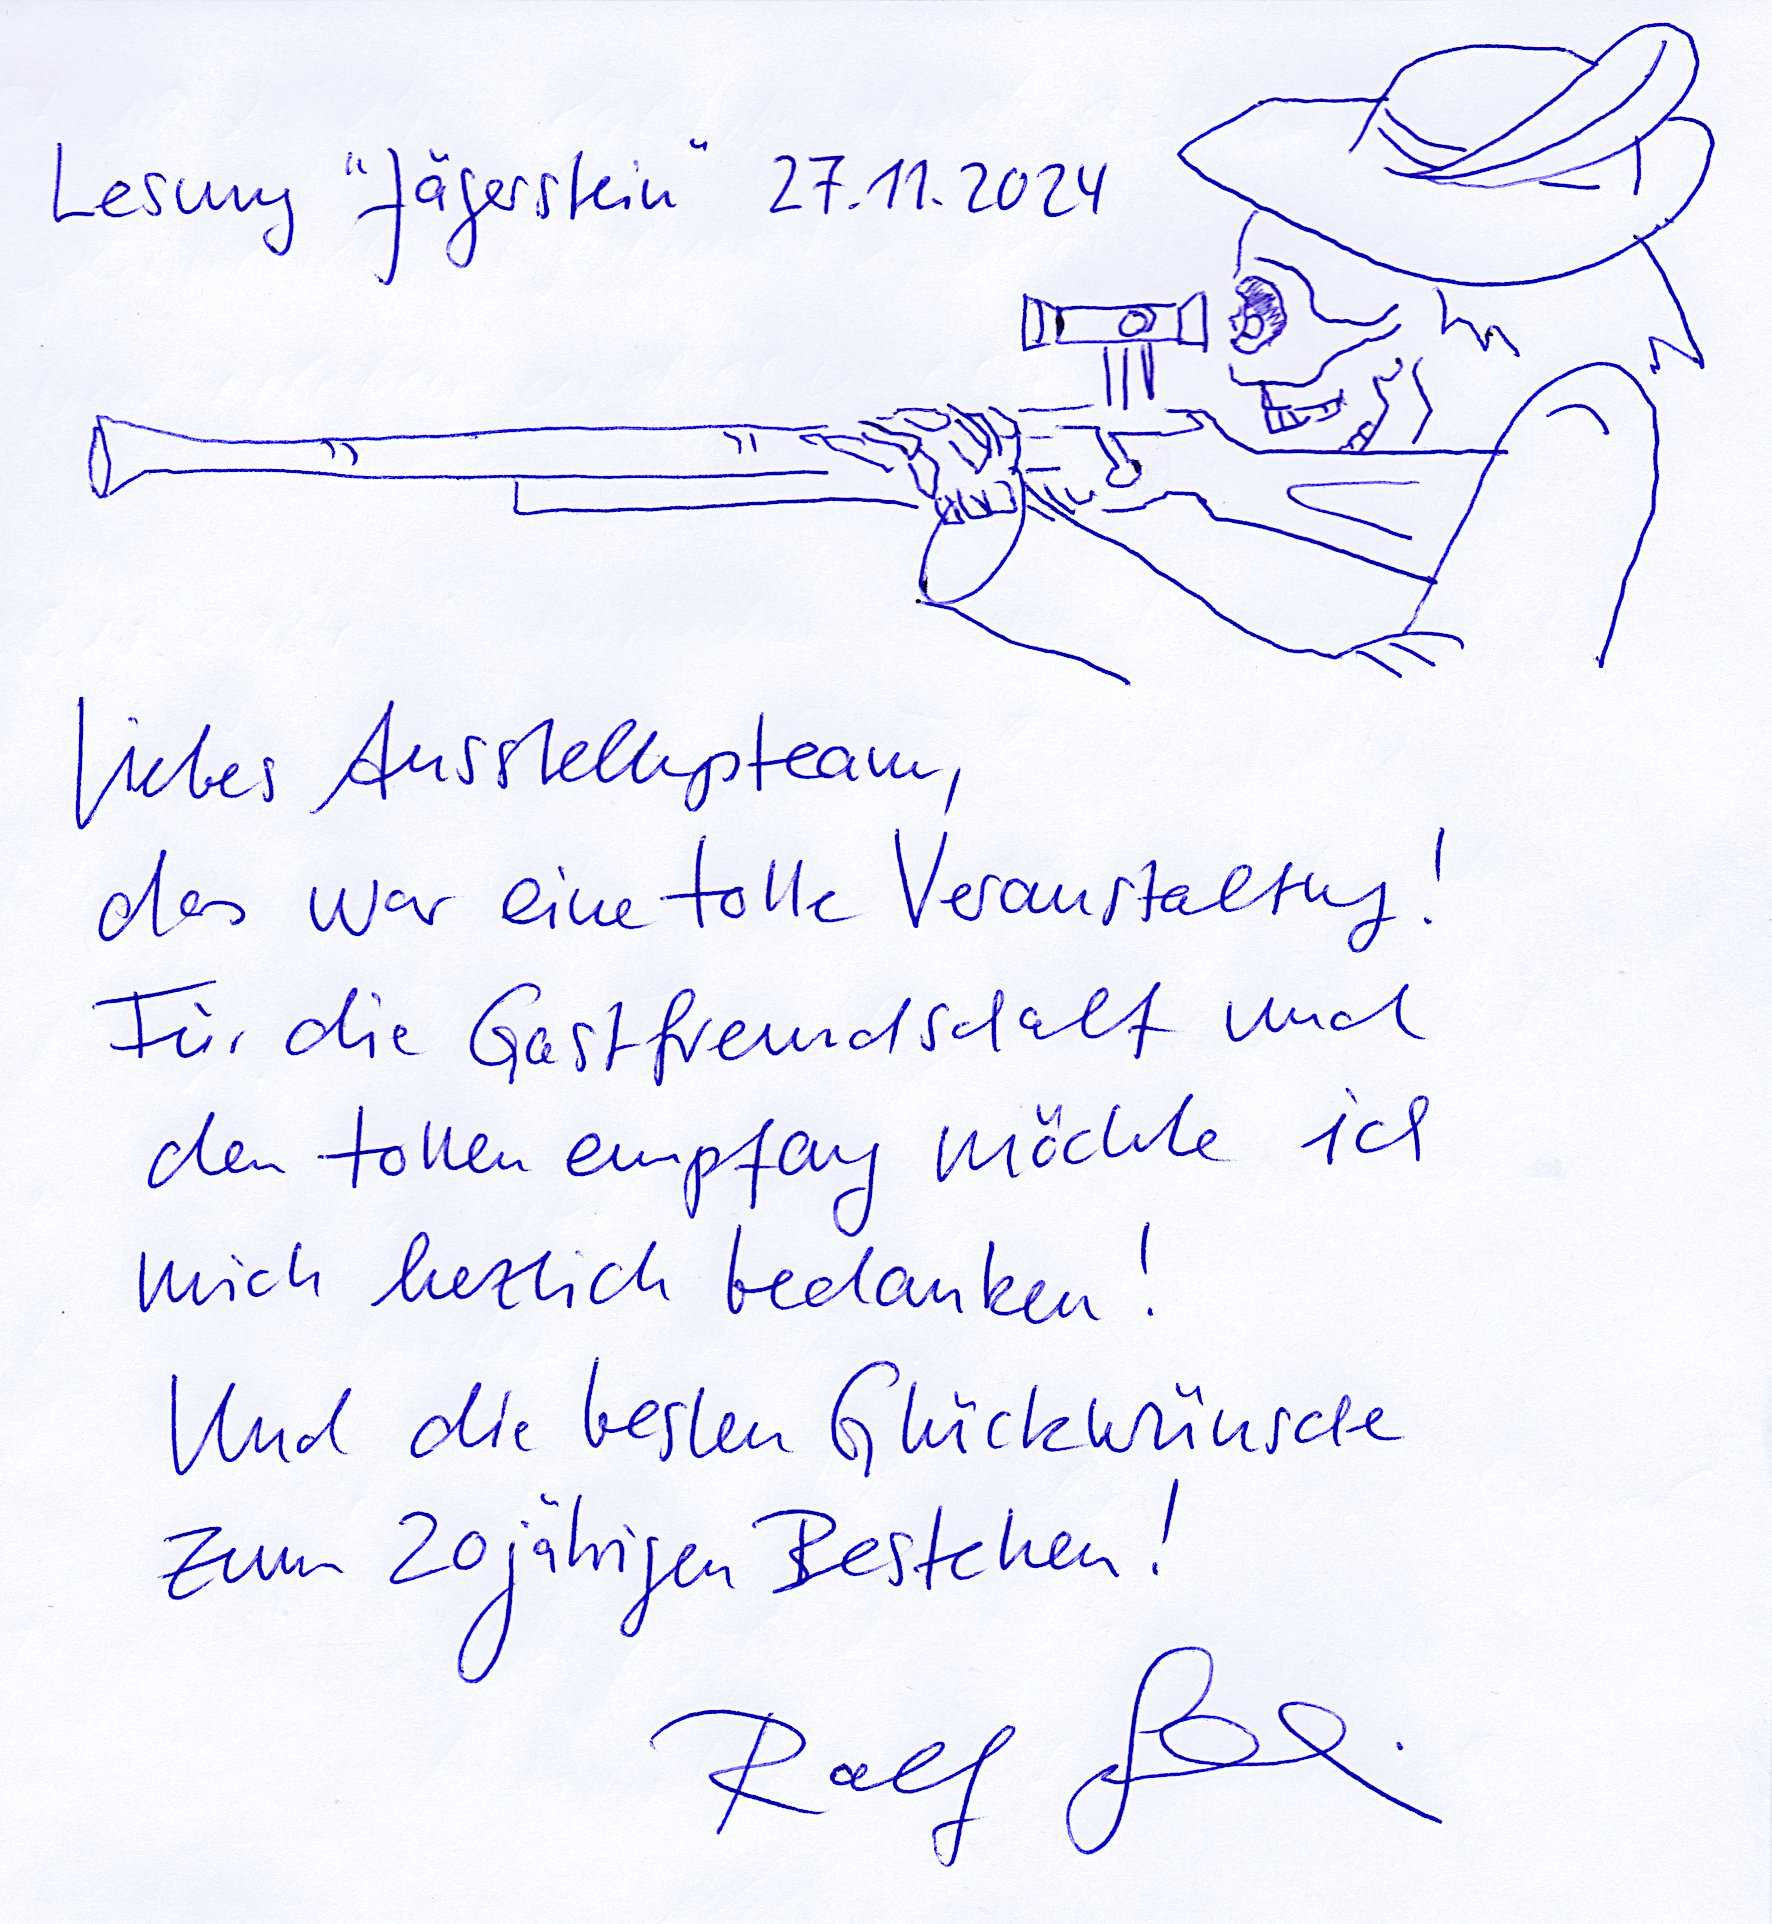 Lesung "Jägerstein" 27.11.2024
Liebes Ausstellungsteam,
das war eine tolle Veranstaltung!
Für die Gastfreundschaft und
den tollen empfang möchte ich
mich herzlich bedanken!
Und die besten Glückwünsche
zum 20jährigen Bestehen!
Ralf